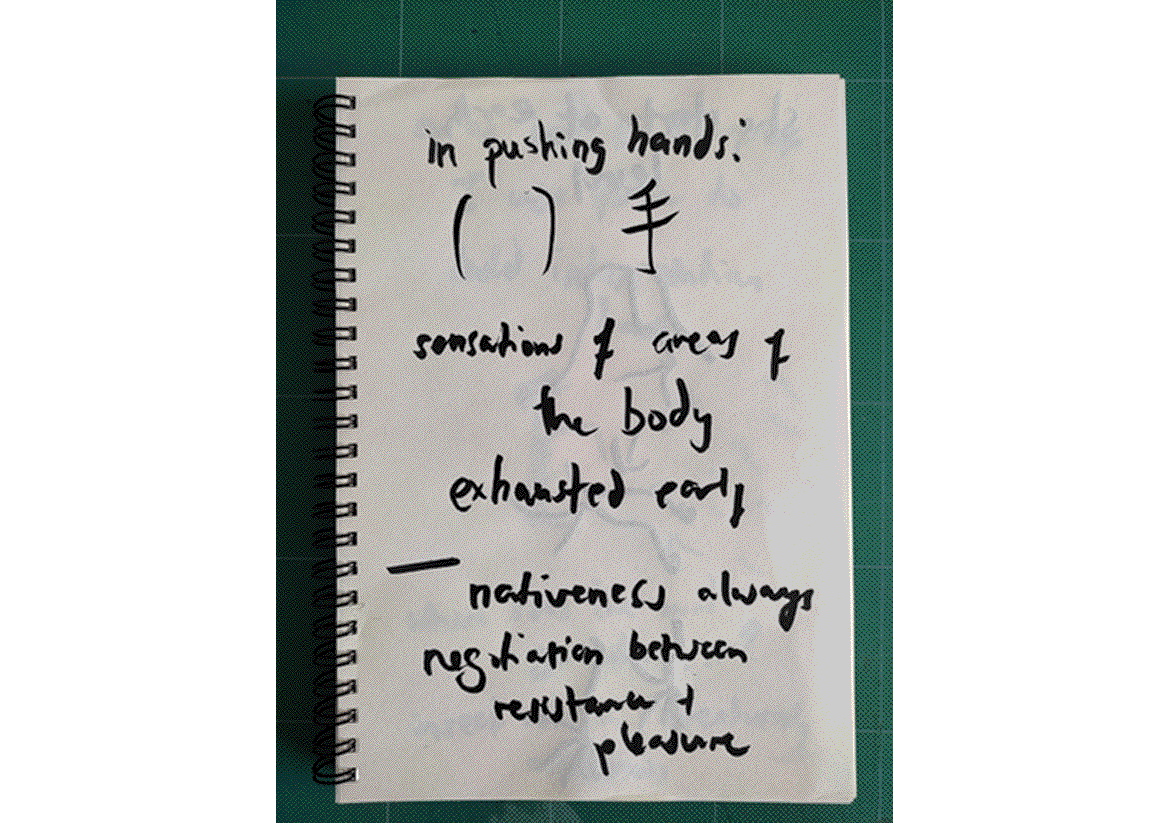 in pushing hands:
( ) 手
sensations of areas of
the body
exhausted early
— nativeness always
negotiation between
resistance +
pleasure